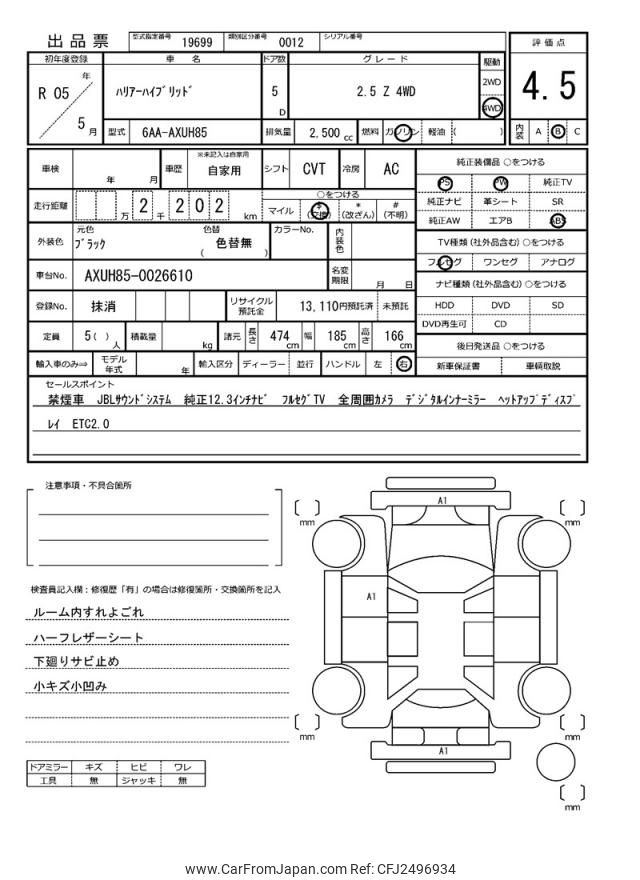 出品票 型式指定番号 19699 類別区分番号 0012 シリアル番号
評価点
4.5
内装 A B C
初年度登録 車名 ドア数 グレード 駆動
R 05 年 5 月 ハリアーハイブリッド 5 D 2.5 Z 4WD 2WD 4WD
型式 6AA-AXUH85 排気量 2,500 cc 燃料 ガソリン 軽油 ( )
車検 年 月 車歴 ※未記入は自家用 自家用 シフト CVT 冷房 AC
走行距離 万 2 千 2 0 2 km ○をつける
マイル $ (交換) * (改ざん) # (不明)
外装色 元色 ブラック 色替 ( 色替無 ) カラーNo. 内装色
車台No. AXUH85-0026610 名変期限 月 日
登録No. 抹消 リサイクル預託金 13,110円預託済 未預託
定員 5( ) 人 積載量 kg 諸元 長さ 474 cm 幅 185 cm 高さ 166 cm
輸入車のみ⇒ モデル年式 年 輸入区分 ディーラー 並行 ハンドル 左 右
純正装備品 ○をつける
PS PW 純正TV
純正ナビ 革シート SR
純正AW エアB ABS
TV種類 (社外品含む) ○をつける
フルセグ ワンセグ アナログ
ナビ種類 (社外品含む) ○をつける
HDD DVD SD
DVD再生可 CD
後日発送品 ○をつける
新車保証書 車輌取説
セールスポイント
禁煙車 JBLサウンドシステム 純正12.3インチナビ フルセグTV 全周囲カメラ デジタルインナーミラー ヘットアップディスプ
レイ ETC2.0
注意事項・不具合箇所
検査員記入欄:修復歴「有」の場合は修復箇所・交換箇所を記入
ルーム内すれよごれ
ハーフレザーシート
下廻りサビ止め
小キズ小凹み
ドアミラー キズ ヒビ ワレ
工具 無 ジャッキ 無
A1
A1
A1
mm
mm
mm
mm
mm
www.CarFromJapan.com Ref: CFJ2496934